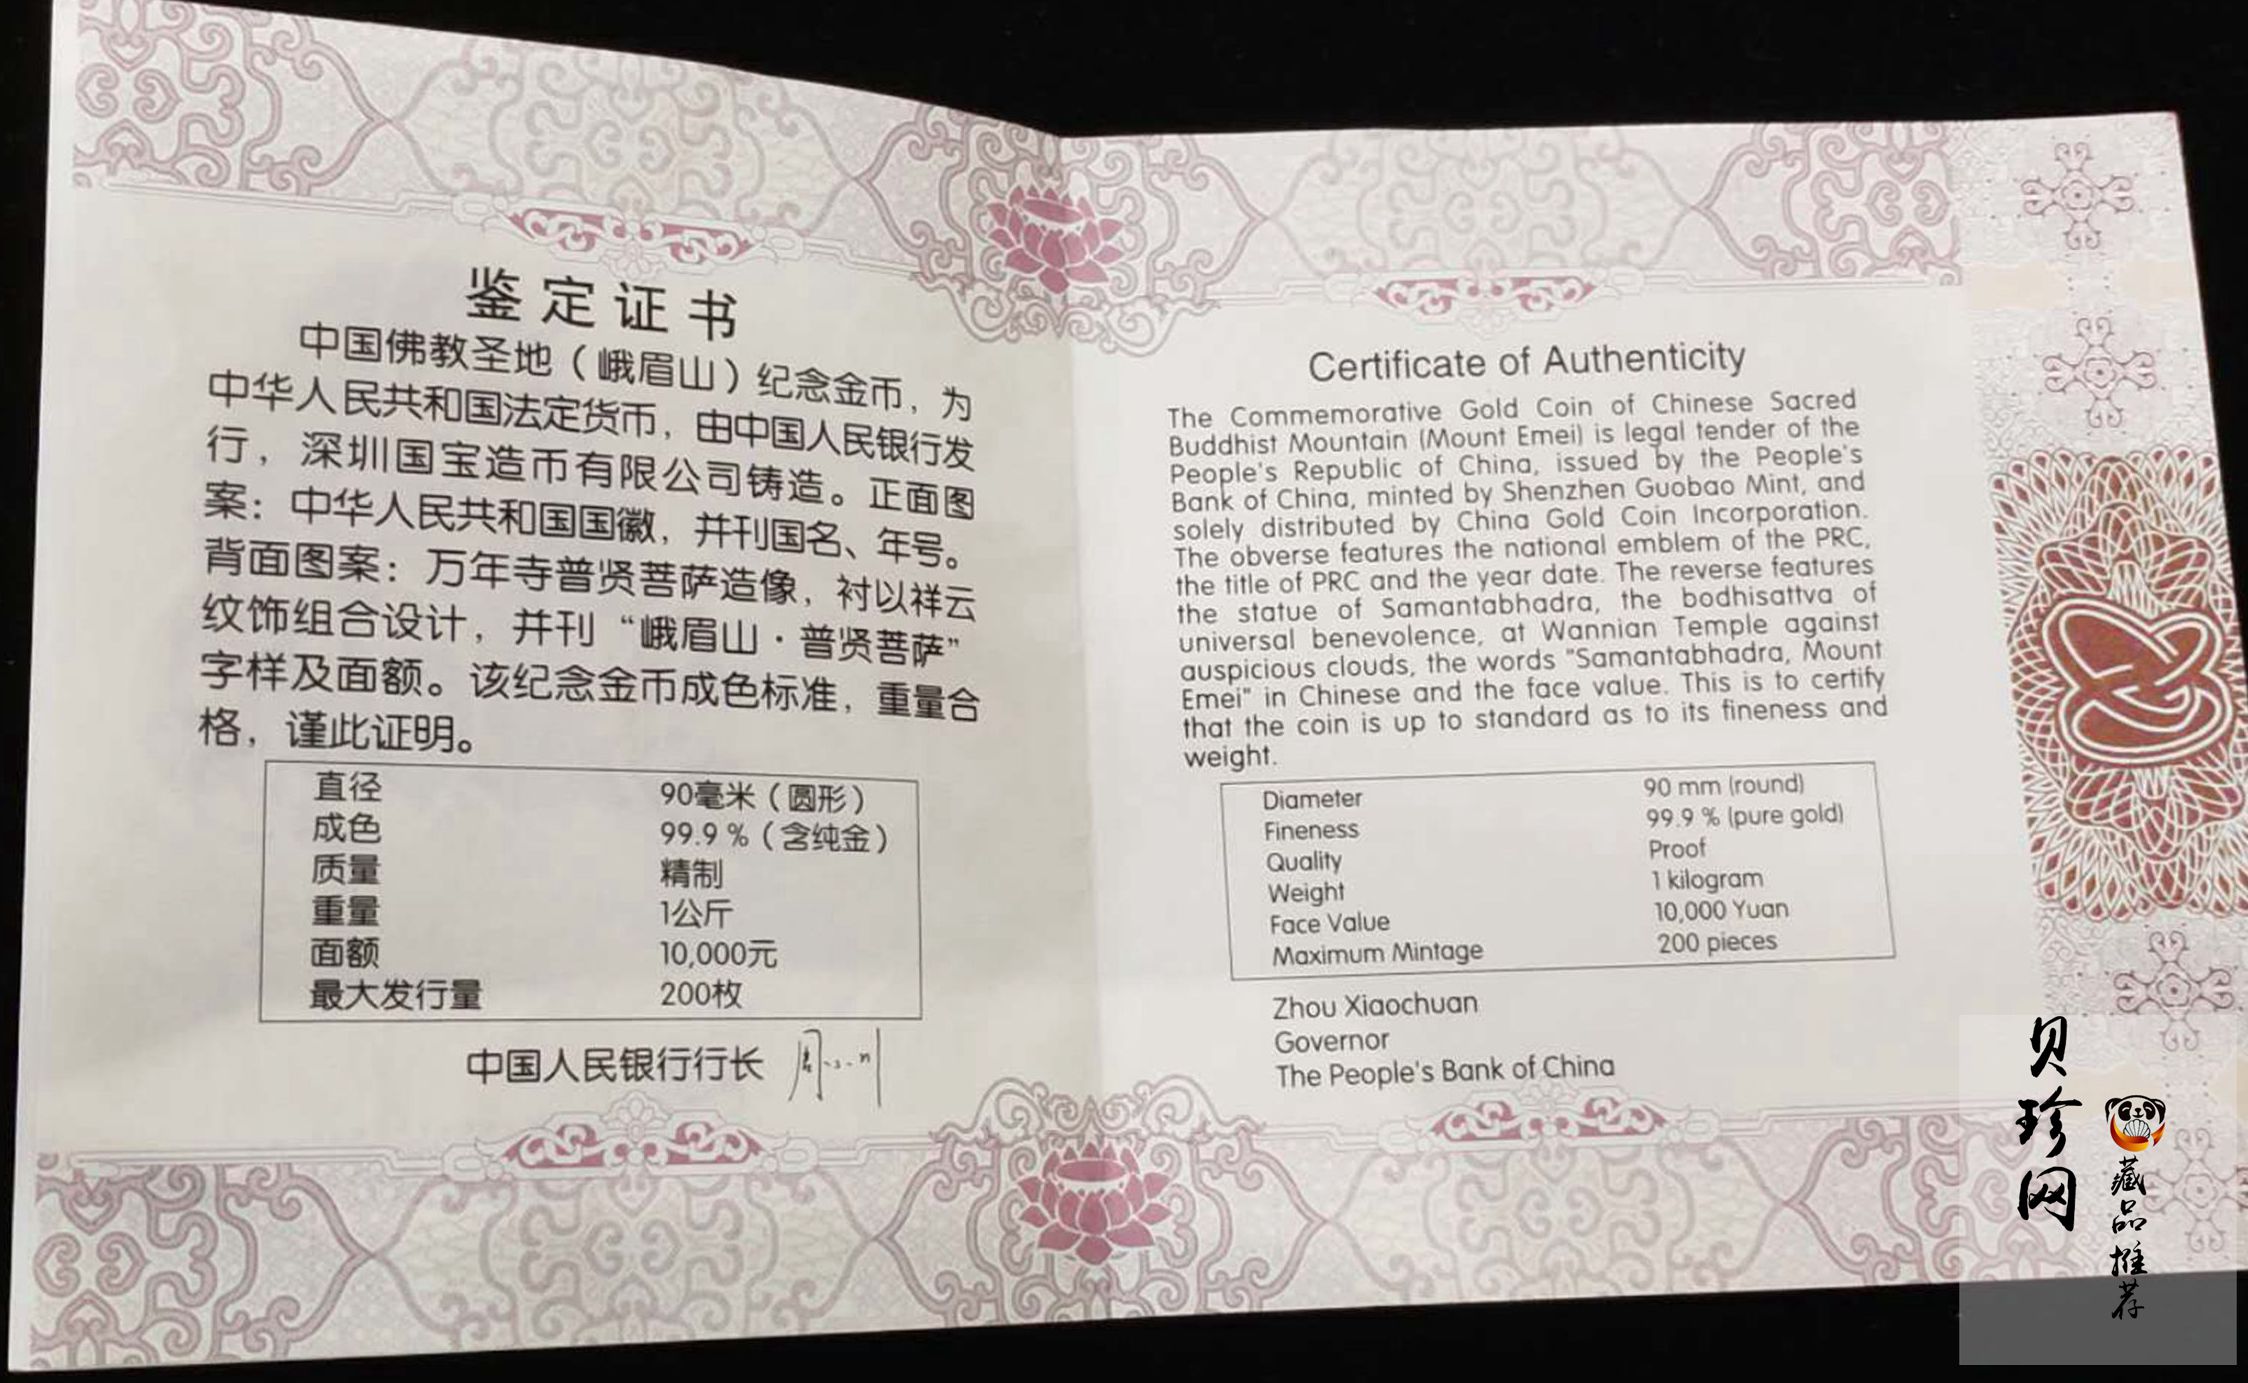 鉴定证书
中国佛教圣地（峨眉山）纪念金币，为
中华人民共和国法定货币，由中国人民银行发
行，深圳国宝造币有限公司铸造。正面图
案：中华人民共和国国徽，并刊国名、年号。
背面图案：万年寺普贤菩萨造像，衬以祥云
纹饰组合设计，并刊“峨眉山·普贤菩萨”
字样及面额。该纪念金币成色标准，重量合
格，谨此证明。
直径 90毫米（圆形）
成色 99.9 %（含纯金）
质量 精制
重量 1公斤
面额 10,000元
最大发行量 200枚
中国人民银行行长
Certificate of Authenticity
The Commemorative Gold Coin of Chinese Sacred
Buddhist Mountain (Mount Emei) is legal tender of the
People's Republic of China, issued by the People's
Bank of China, minted by Shenzhen Guobao Mint, and
solely distributed by China Gold Coin Incorporation.
The obverse features the national emblem of the PRC,
the title of PRC and the year date. The reverse features
the statue of Samantabhadra, the bodhisattva of
universal benevolence, at Wannian Temple against
auspicious clouds, the words "Samantabhadra, Mount
Emei" in Chinese and the face value. This is to certify
that the coin is up to standard as to its fineness and
weight.
Diameter 90 mm (round)
Fineness 99.9 % (pure gold)
Quality Proof
Weight 1 kilogram
Face Value 10,000 Yuan
Maximum Mintage 200 pieces
Zhou Xiaochuan
Governor
The People's Bank of China
贝珍网
藏品推荐